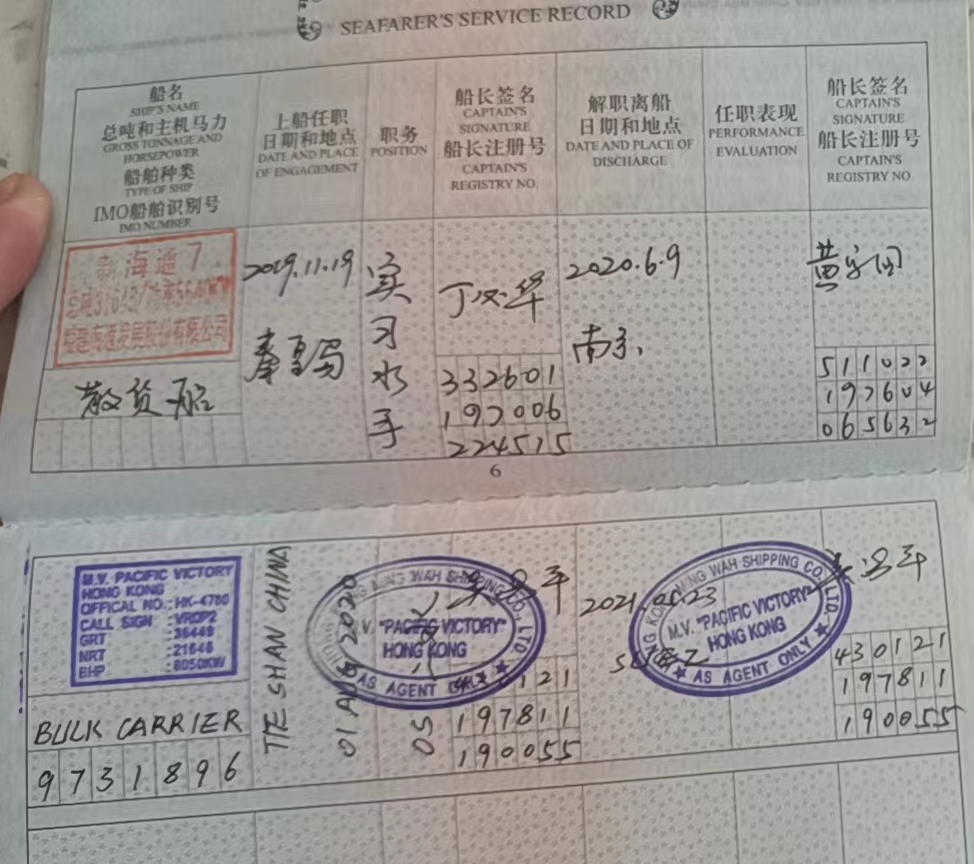 SEAFARER'S SERVICE RECORD
船名
SHIP'S NAME
总吨和主机马力
GROSS TONNAGE AND
HORSEPOWER
船舶种类
TYPE OF SHIP
IMO船舶识别号
IMO NUMBER
上船任职
日期和地点
DATE AND PLACE
OF ENGAGEMENT
职务
POSITION
船长签名
CAPTAIN'S
SIGNATURE
船长注册号
CAPTAIN'S
REGISTRY NO.
解职离船
日期和地点
DATE AND PLACE OF
DISCHARGE
任职表现
PERFORMANCE
EVALUATION
船长签名
CAPTAIN'S
SIGNATURE
船长注册号
CAPTAIN'S
REGISTRY NO
海通7
福建海通发展股份有限公司
散货船
2019.11.19
秦皇岛
实
习
水
手
332601
197006
224515
2020.6.9
南京
511022
197604
065632
6
M.V. PACIFIC VICTORY
HONG KONG
OFFICAL NO.: HK-4780
CALL SIGN : VROP2
GRT : 36449
NRT : 21646
BHP : 8050KW
BULK CARRIER
9731896
TIE SHAN CHINA
01 AUG 2020
OS
MING WAH SHIPPING CO., LTD.
M.V. "PACIFIC VICTORY"
HONG KONG
AS AGENT ONLY
197811
190055
2021.01.23
HONG KONG MING WAH SHIPPING CO., LTD.
M.V. "PACIFIC VICTORY"
HONG KONG
AS AGENT ONLY
430121
197811
190055